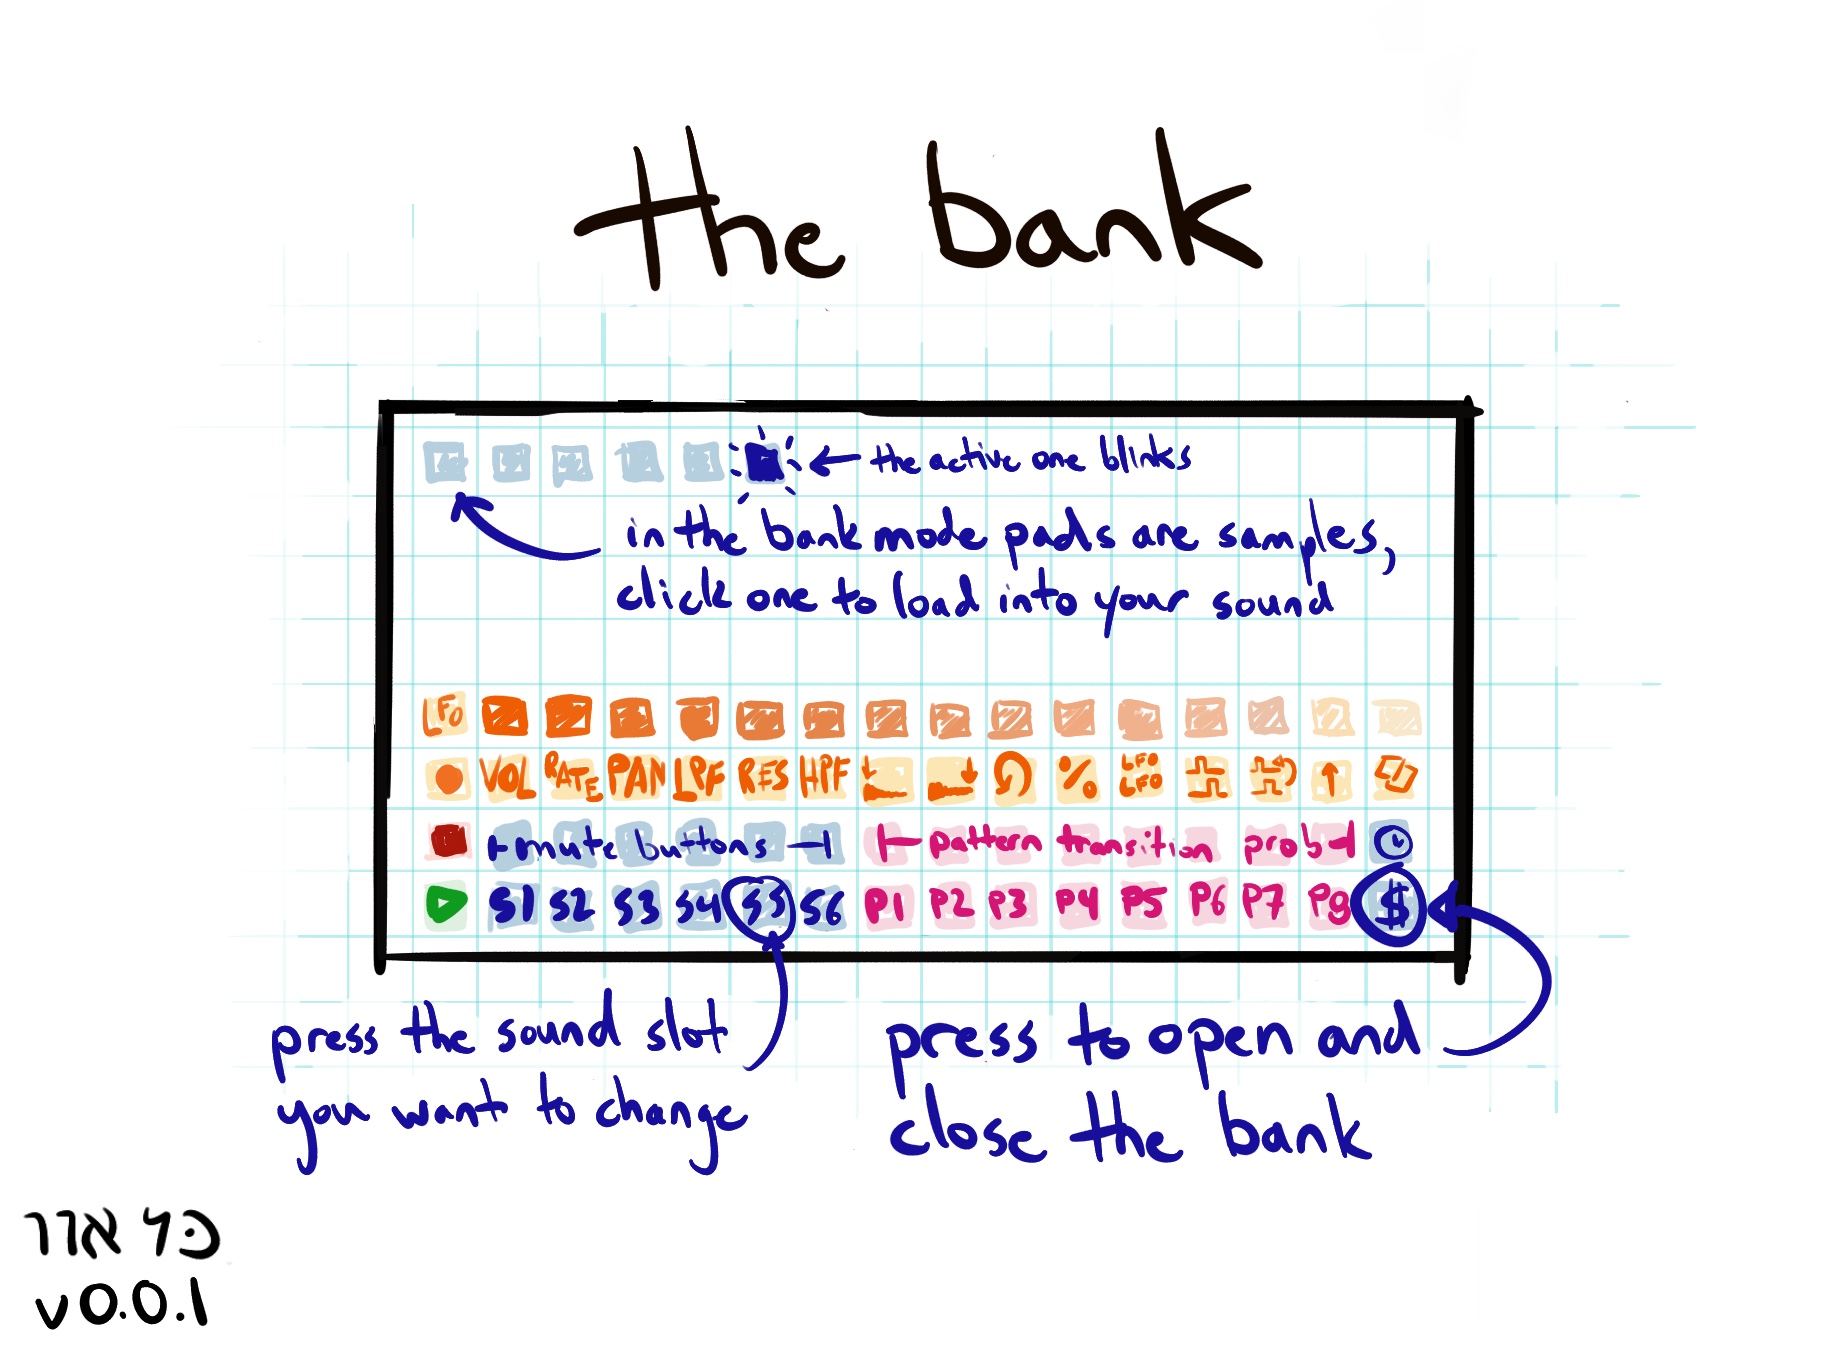 the bank
← the active one blinks
in the bank mode pads are samples,
click one to load into your sound
LFO
VOL RATE PAN LPF RES HPF % LFO LFO ↑
mute buttons pattern transition prob
S1 S2 S3 S4 S5 S6 P1 P2 P3 P4 P5 P6 P7 P8 $
press the sound slot
you want to change
press to open and
close the bank
v0.0.1